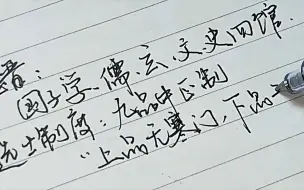 晋：
国子学、儒、玄、文、史四馆.
选士制度：九品中正制
"上品无寒门，下品